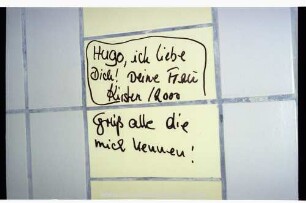 Hugo, ich liebe
Dich! Deine Frau
Kirsten /2000
Grüß alle die
mich kennen!